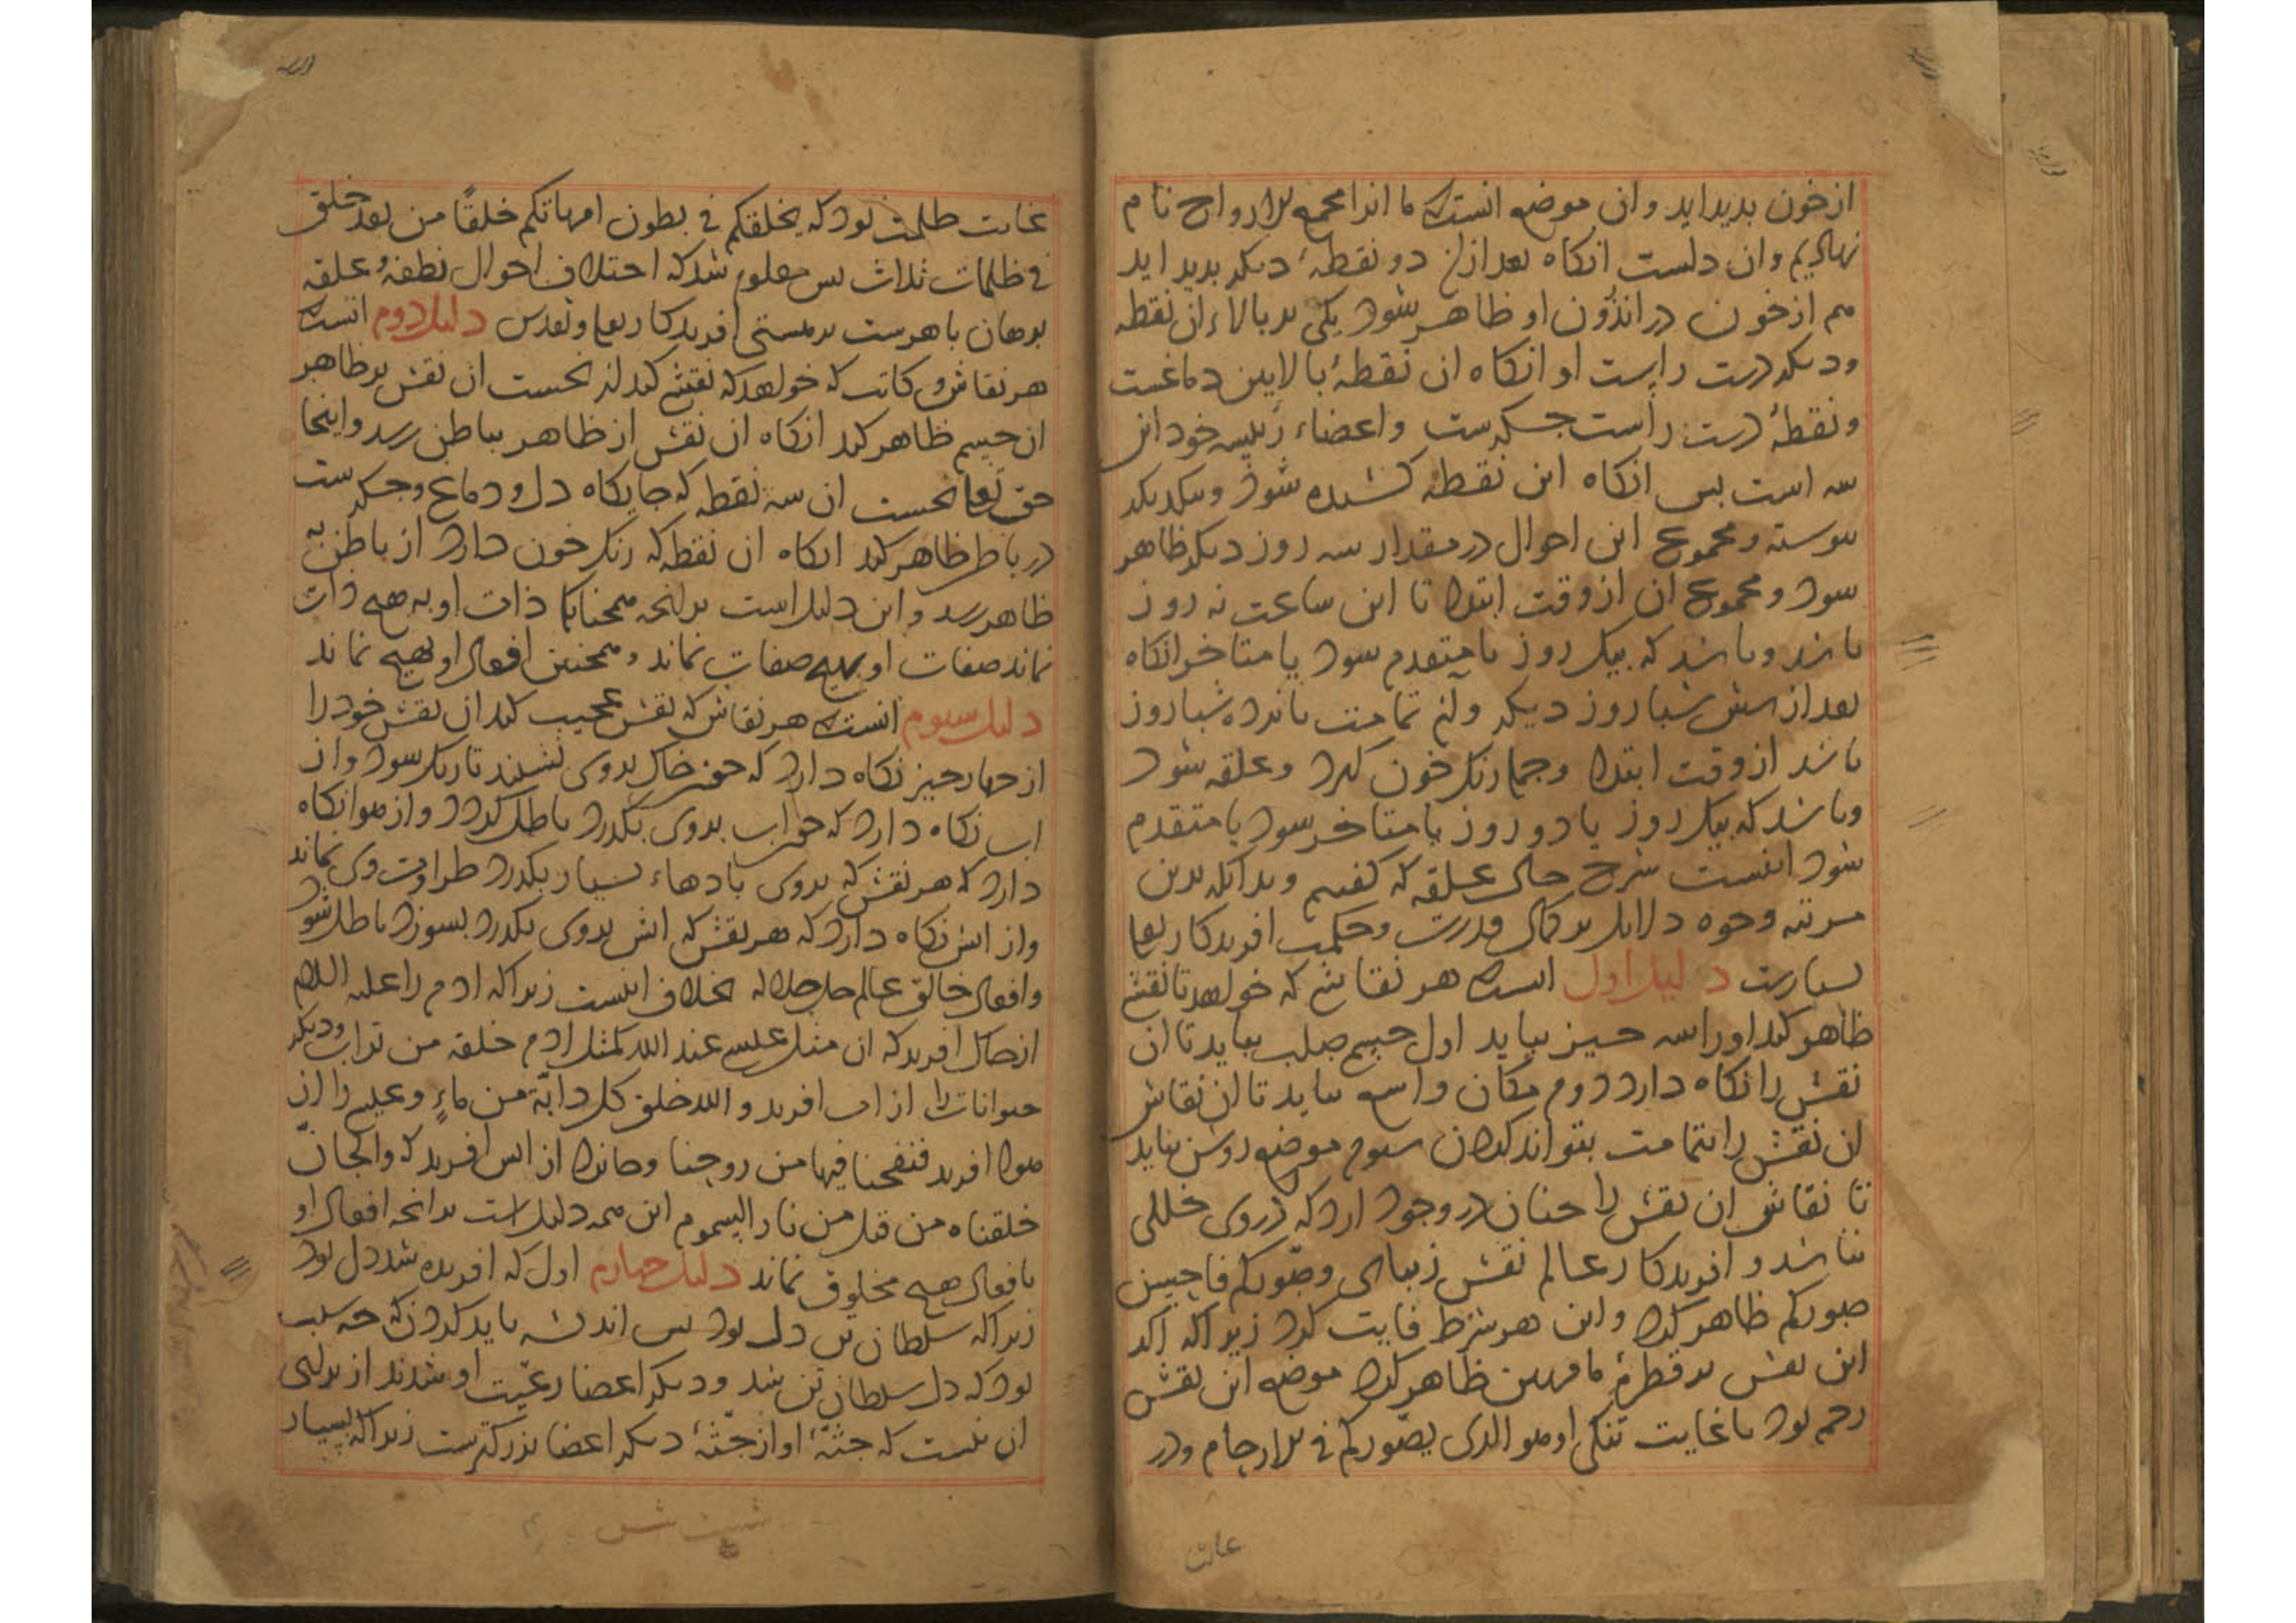 از خون بدید اید و ان موضع انست که ما انرا مجمع الارواح نام
نهادیم و ان دلست انکاه بعد ازان دو نقطهٔ دیکر بدید اید
هم از خون در اندرون او ظاهر شود یکی بر بالاء ان نقطه
و دیکر درست راست او انکاه ان نقطهٔ بالایین دماغست
و نقطهٔ دست راست جکرست و اعضاء رییسه خود این
سه است بس انکاه این نقطه کشیده شود و بیکدیکر
بیوسته و مجموع این احوال در مقدار سه روز دیکر ظاهر
شود و مجموع ان از وقت ابتدا تا این ساعت نه روز
باشد و باشد که بیک روز یا متقدم سود یا متاخر انکاه
بعد از شش شبا روز دیکر و ان تمامت بانزده شبا روز
باشد از وقت ابتدا و جمله رنک خون کیرد و علقه شود
و باشد که بیک روز یا دو روز یا متاخر سود یا متقدم
شود اینست شرح حال علقه که کفتیم و بدانکه بدین
مرتبه وجوه دلایل بر کمال قدرت و حکمت افریدکار تعالی
بسیارست دلیل اول انست که هر نقاشی که خواهد تا نقشی
ظاهر کند او را سه جیز بباید اول جسم صلب بباید تا ان
نقش را نکاه دارد دوم مکان واسع بباید تا ان نقاش
ان نقش را بتمامت بتواند کردن سوم موضع روشن بباید
تا نقاش ان نقش را جنان در وجود ارد که در وی خللی
نباشد و افریدکار عالم نقش زیبای وصورکم فاحسن
صورکم ظاهر کرد و این هر شرط فایت کرد زیرا که اکر
این نقش بر قطرهٔ ماء مهین ظاهر کرد موضع این نقش
رحم بود با غایت تنکی او هو الذی یصورکم فی الارحام و در
عایت
غایت ظلمت بود که یخلقکم فی بطون امهاتکم خلقًا من بعد خلق
فی ظلمات ثلاث بس معلوم شد که اختلاف احوال نطفه و علقه
برهان باهرست بر هستی افریدکار تعالی و تقدس دلیل دوم انست که
هر نقاش و کاتب که خواهد که نقشی کند از نخست ان نقش بر ظاهر
ان جسم ظاهر کند انکاه ان نقش از ظاهر بباطن رسد و اینجا
حق تعالی نخست ان سه نقطه که جایکاه دل و دماغ و جکرست
در باطن ظاهر کند انکاه ان نقطه که رنک خون دارد از باطن به
ظاهر رسد و این دلیل است بر انجه همجنانکه ذات او به هیج ذات
نماند صفات او بهیج صفات نماند و همجنین افعال او بهیج نماند
دلیل سیوم انست که هر نقاش که نقش عجیب کند ان نقش خود را
از جهار جیز نکاه دارد که جون خاک بروی نشیند تاریک سود و از
اب نکاه دارد که جون اب بروی بکذرد باطل کردد و از هوا نکاه
دارد که هر نقش که بروی بادهاء بسیار بکذرد طراوت وی نماند
و از اتش نکاه دارد که هر نقش که اتش بروی بکذرد بسوزد باطل شود
و افعال خالق عالم جل جلاله بخلاف اینست زیرا که ادم را علیه السلام
از خاک افرید که ان مثل عیسی عند الله کمثل ادم خلقه من تراب و دیکر
حیوانات را از اب افرید و الله خلق کل دابّة من ماءٍ و عیسی را از
هوا افرید فنفخنا فیها من روحنا و جانرا از اتش افرید که والجانّ
خلقناه من قبل من نار السموم این همه دلیل است بر انجه افعال او
بافعال هیج مخلوق نماند دلیل جهارم اول که افریده شد دل بود
زیرا که سلطان تن دل بود بس اندیشه باید کردن که جه سبب
بود که دل سلطان تن شد و دیکر اعضا رعیّت او شدند از برای
ان نیست که جثّهٔ او از جثّهٔ دیکر اعضا بزرکترست زیرا که بسیار